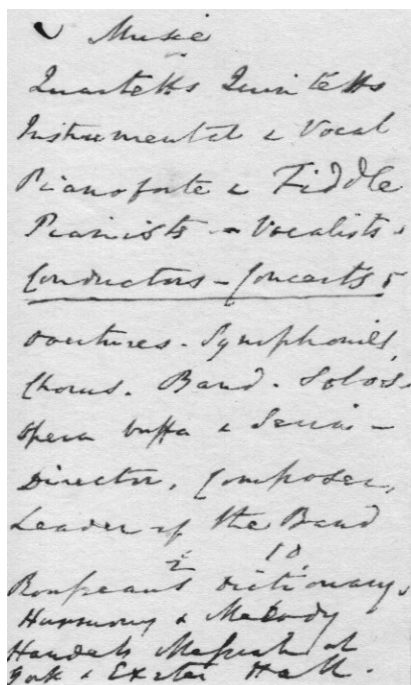 Music
Quartetts Quintetts
Instrumental & Vocal
Pianoforte & Fiddle
Pianists - Vocalists.
Conductors - Concerts
Overtures. Symphonies,
Chorus. Band. Solos.
Opera buffa & Seria -
Director, Composer,
Leader of the Band
2 18
Rousseau's Dictionary.
Harmony & Melody
Handels Messiah at
York & Exeter Hall.